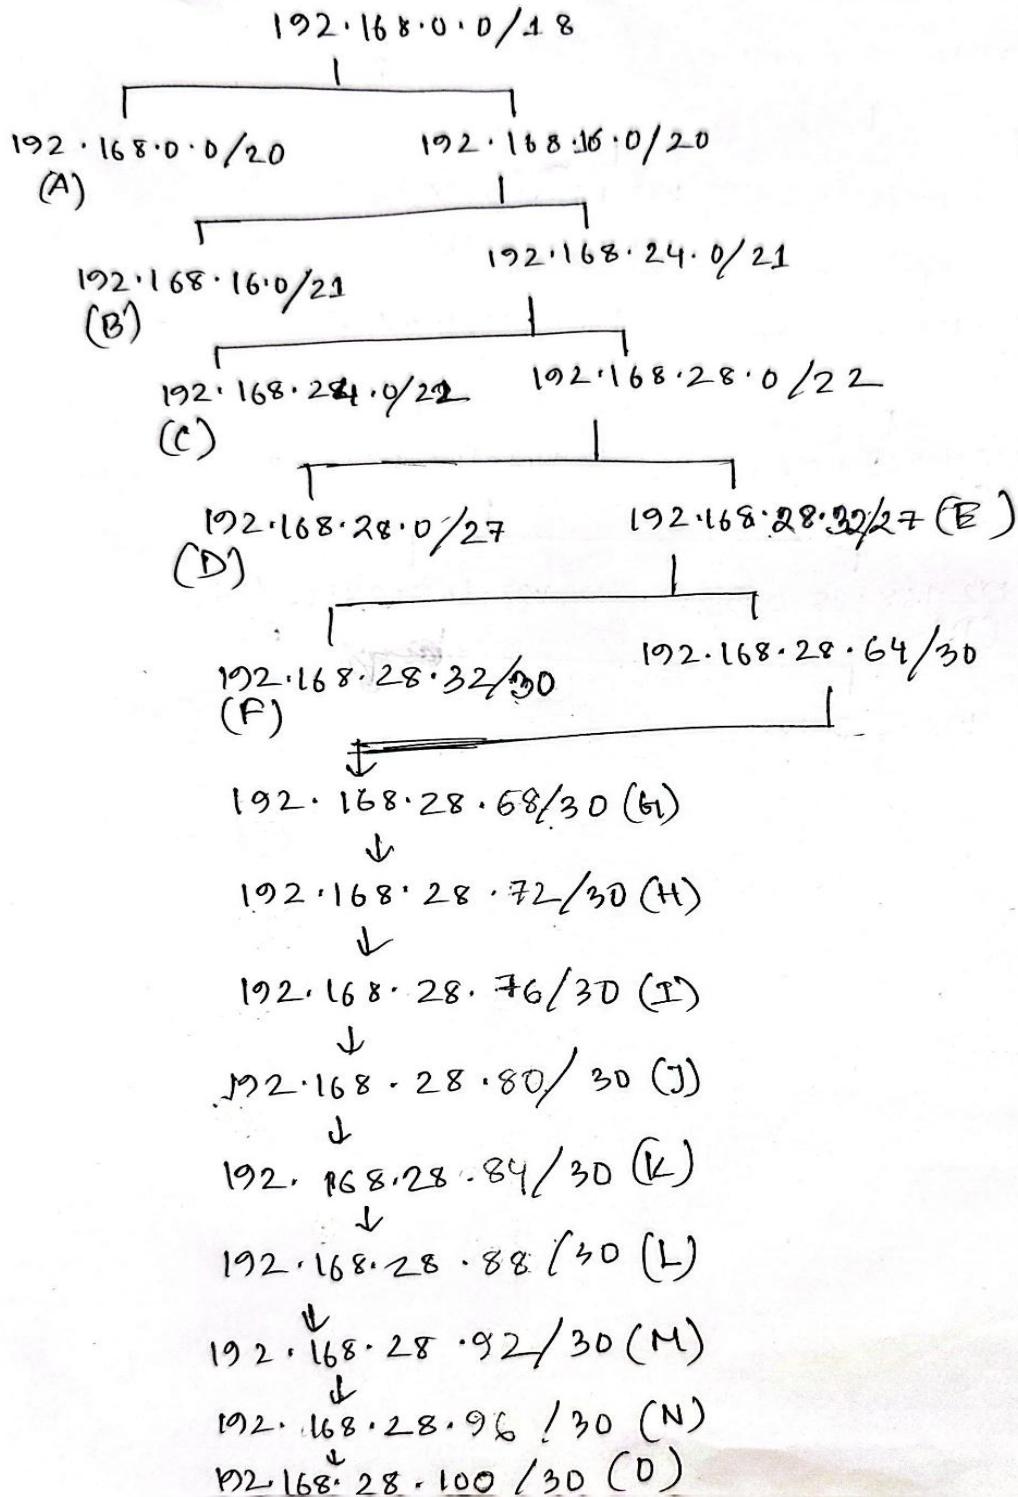 192.168.0.0/18
192.168.0.0/20 192.168.16.0/20
(A)
192.168.16.0/21 192.168.24.0/21
(B)
192.168.24.0/22 192.168.28.0/22
(C)
192.168.28.0/27 192.168.28.32/27 (E)
(D)
192.168.28.32/30 192.168.28.64/30
(F)
192.168.28.68/30 (G)
192.168.28.72/30 (H)
192.168.28.76/30 (I)
192.168.28.80/30 (J)
192.168.28.84/30 (K)
192.168.28.88/30 (L)
192.168.28.92/30 (M)
192.168.28.96/30 (N)
192.168.28.100/30 (O)